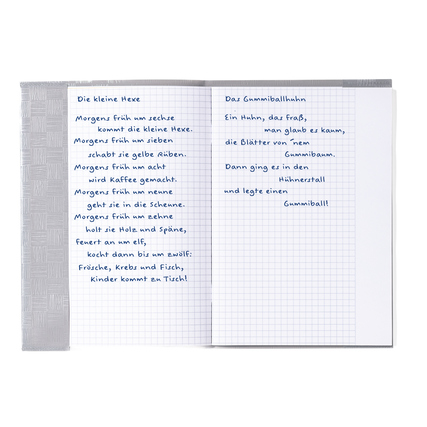 Die kleine Hexe
Morgens früh um sechse
kommt die kleine Hexe.
Morgens früh um sieben
schabt sie gelbe Rüben.
Morgens früh um acht
wird Kaffee gemacht.
Morgens früh um neune
geht sie in die Scheune.
Morgens früh um zehne
holt sie Holz und Späne,
Feuert an um elf,
kocht dann bis um zwölf:
Frösche, Krebs und Fisch,
Kinder kommt zu Tisch!
Das Gummiballhuhn
Ein Huhn, das fraß,
man glaub es kaum,
die Blätter von ´nem
Gummibaum.
Dann ging es in den
Hühnerstall
und legte einen
Gummiball!